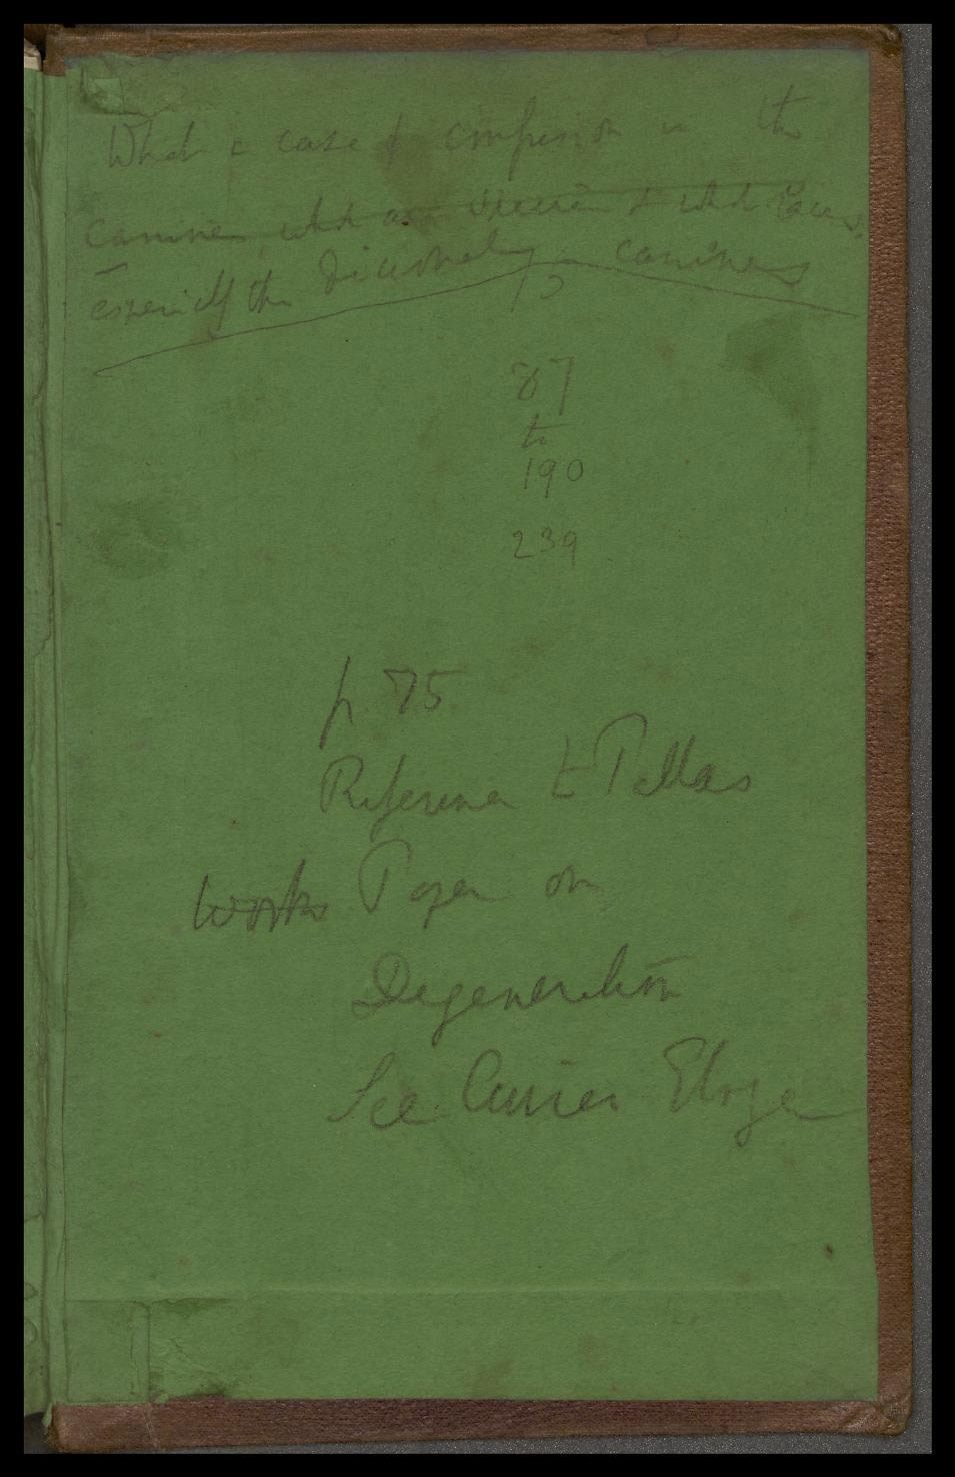 What a case of confusion is the
canines, what are species & what races.
especially the domesticated canines
87
to
190
239
p. 75
Reference to Pallas
works Paper on
Degeneration
See Cuvier Eloge